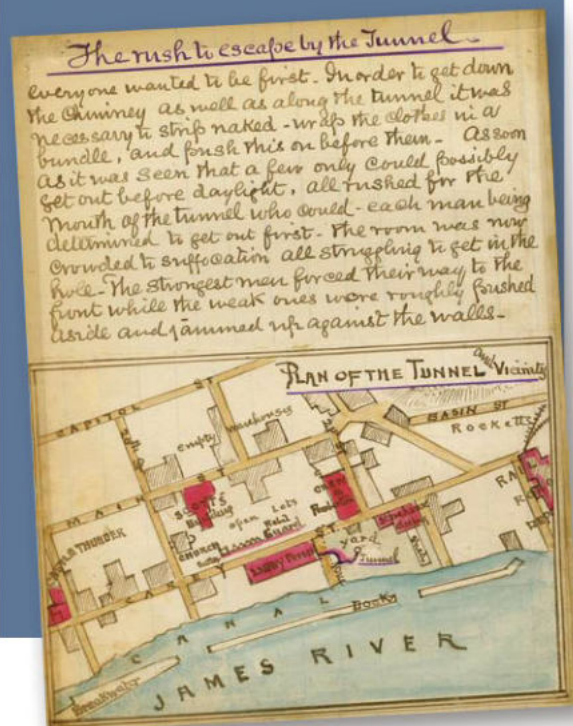 The rush to escape by the Tunnel
everyone wanted to be first. In order to get down
the chimney as well as along the tunnel it was
necessary to strip naked - wrap the clothes in a
bundle, and push this on before them. As soon
as it was seen that a few only could possibly
get out before daylight, all rushed for the
mouth of the tunnel who could - each man being
determined to get out first - the room was now
crowded to suffocation all struggling to get in the
hole - The strongest men forced their way to the
front while the weak ones were roughly pushed
aside and jammed up against the walls -
PLAN OF THE TUNNEL and Vicinity
CAPITOL ST
BASIN ST
Rocketts
empty warehouses
MAIN ST
SCOTT'S Building
open Lots
CASTLE THUNDER
CHURCH
Guard
yard
Tunnel
Libby Prison
CANAL
Docks
Breakwater
JAMES RIVER